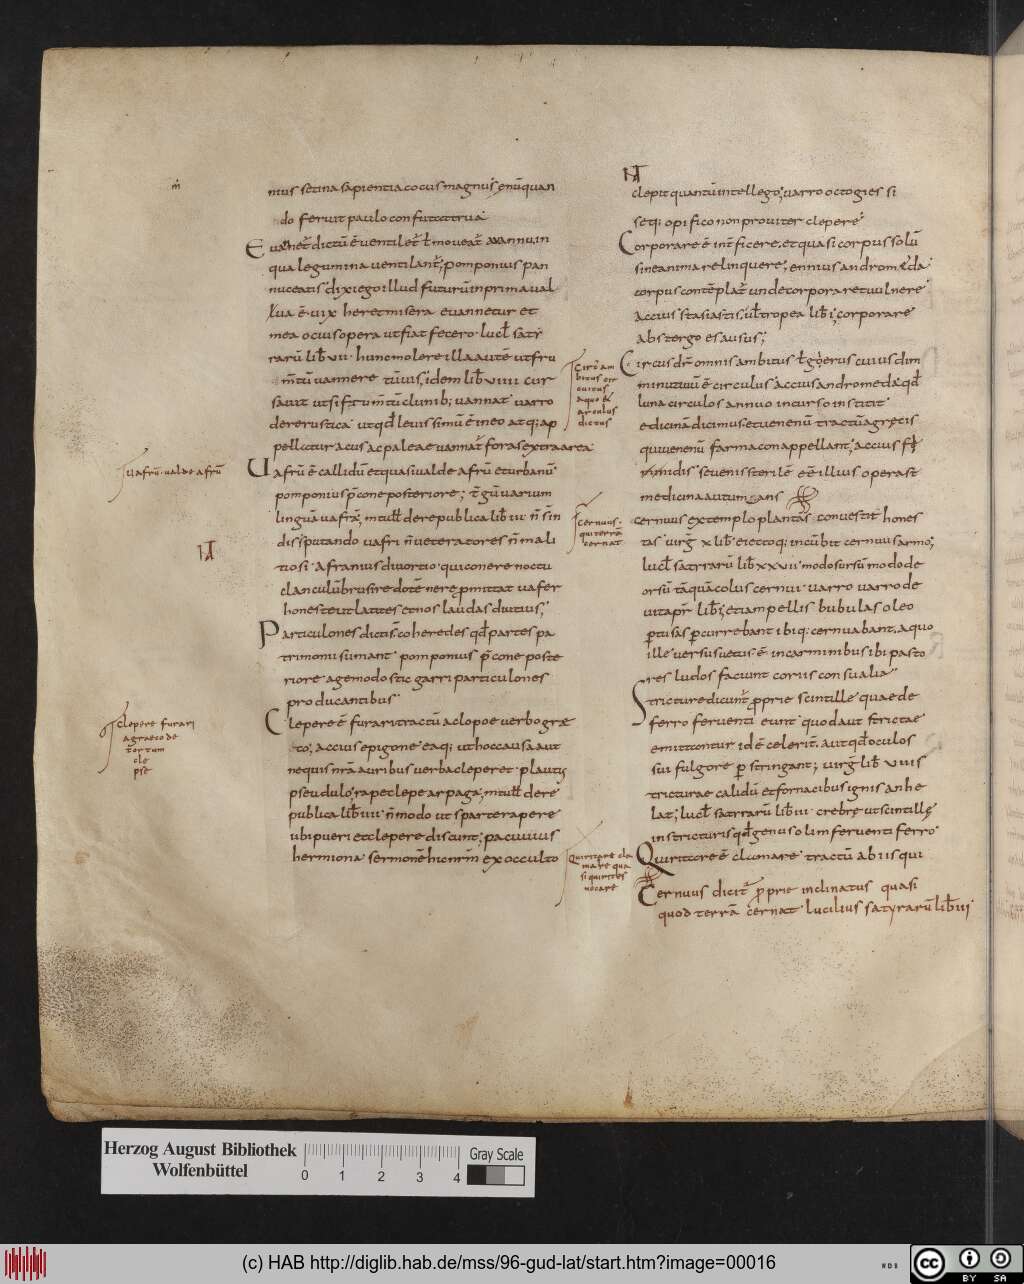 nius setina sapientia cocus magnus; enũquan
do feruit paulo confutat trua
Euannet̃ dictũ ẽ uentilet̃ ł moueat̃ a uannu, in
qua legumina uentilant̃; pomponius pan
nuceatis dixi ego illud futurũ in prima ual
ua ẽ uix heret misera euannetur et
mea ocius opera ut fiat fecero lucł satỹ
rarũ lib̃ uii hunc molere illa autẽ ut fru
m̃tũ uannere tũ uis; idem lib̃ uiiii cur
sauit uti si frum̃tũ clunib; uannat uarro
dererustica utqđ leuis simũ ẽ in eo atq; ap
pellatur acus ac paleae uannat̃ foras extra area
Uafrũ ẽ callidũ et quasi ualde afrũ et urbanũ
pomponius p̃cone posteriore;
linguã uafrã; m tułł de republica lib̃ iii ñ sin
disputando uafri ñ ueteratores ñ mali
tiosi afranius diuortio qui conere noctu
clanculũ brusire dotẽ nere p̃mittat uafer
honeste ut latites et nos laudas diutius;
Particulones dicti s̃ coheredes qđ partes pa
trimonii sumant pomponius p̃cone poste
riore age modo stic garri particulones
producantibus
Clepere ẽ furari tractũ a clopoe uerbo græ
co; accius epigone eaq; ut hoc causa aut
nequis nr̃a auribus uerba cleperet plautus
pseudulo; rape clepe arpaga; m tułł de re
publica lib̃ iiii ñ modo ut spartae rapere
ubi pueri et clepere discunt; pacuuius
hermiona sermonẽ hic nr̃m ex occulto
clepit quantũ intellego; uarro octogies si
seq; opifico non prouiter clepere
Corporare ẽ int̃ficere, et quasi corpus solũ
sine anima relinquere; ennius andromeda
corpus contẽplat̃ unde corporaret uulnere
accius stasiastis; uł tropea lib̃i; corporare
abs tergo es ausus;
Circus dr̃ omnis ambitus ł gyrus cuius dim
minutiuũ ẽ circulus accius andromeda; qđ
luna circulos annuo in curso instituit
medicina dicimus et uenenũ tractũ a grecis
qui uenenũ farmacon appellant; accius
minidis
medicina autumgans
cernuus extemplo plantas conuestit hones
tas uirg̃ x lib̃ eiectoq; incũbit cernuus armo;
lucł satyrarũ lib̃ xxuii modo sursũ modo de
orsũ tãquã colus cernui uarro uarro de
uita p̃r lib̃i; etiam pellis bubulas oleo
p̃fusas p̃currebant ibiq; cernuabant, a quo
ille uersus uetus ẽ in carminibus ibi pasto
res ludos faciunt coriis consualia
Stricture dicunt̃ p̃prie scintille quae de
ferro feruenti eunt quod aut strictae
emittantur id ẽ celerit̃ aut qđ oculos
sui fulgore p̃stringant; uirg̃ lib̃ uiiis
stricturae calidũ et fornacibus ignis anhe
lat; lucł satyrarũ lib̃ iii crebrę ut scintillę
in stricturis qđ genus olim feruenti ferro
Quiritare ẽ clamare tractũ ab iis qui
Cernuus dicit̃ p̃prie inclinatus quasi
quod terrã cernat lucilius satyrarũ lib̃ iii
uafrũ ualde afrũ
clepere furari
a graeco de
tortum
cle
pse
circ
am
bitus
cuitus
a quo
circulus
dictus
cernuus
qui terrã
cernat
Quiritare cla
mare qua
si quirites
uocare
Herzog August Bibliothek
Wolfenbüttel
0 1 2 3 4
Gray Scale
(c) HAB http://diglib.hab.de/mss/96-gud-lat/start.htm?image=00016
WDB
cc BY SA